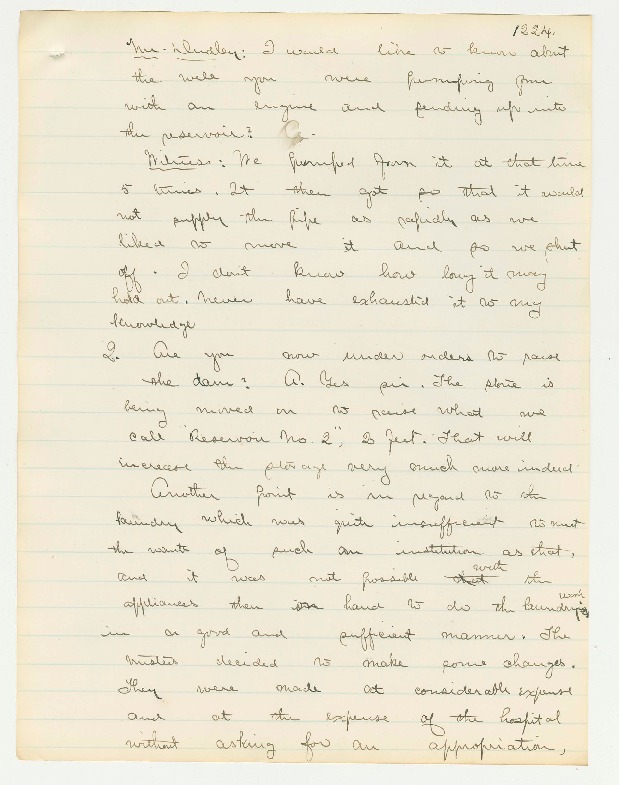 1224.
Mr. Dudley: I would like to know about
the well you were pumping from
with an engine and sending up into
the reservoir?
Witness: We pumped from it at that time
5 times. It then got so that it would
not supply the pipe as rapidly as we
liked to move it and so we shut
off. I don't know how long it may
hold out. Never have exhausted it to my
knowledge
Q. Are you now under orders to raise
the dam? A. Yes sir. The stone is
being moved on to raise what we
call "Reservoir No. 2", 2 feet. That will
increase the storage very much more indeed
Another point is in regard to the
laundry which was quite insufficient to meet
the wants of such an institution as that,
and it was not possible with the
appliances then on hand to do the laundry work
in a good and sufficient manner. The
trustees decided to make some changes.
They were made at considerable expense
and at the expense of the hospital
without asking for an appropriation,